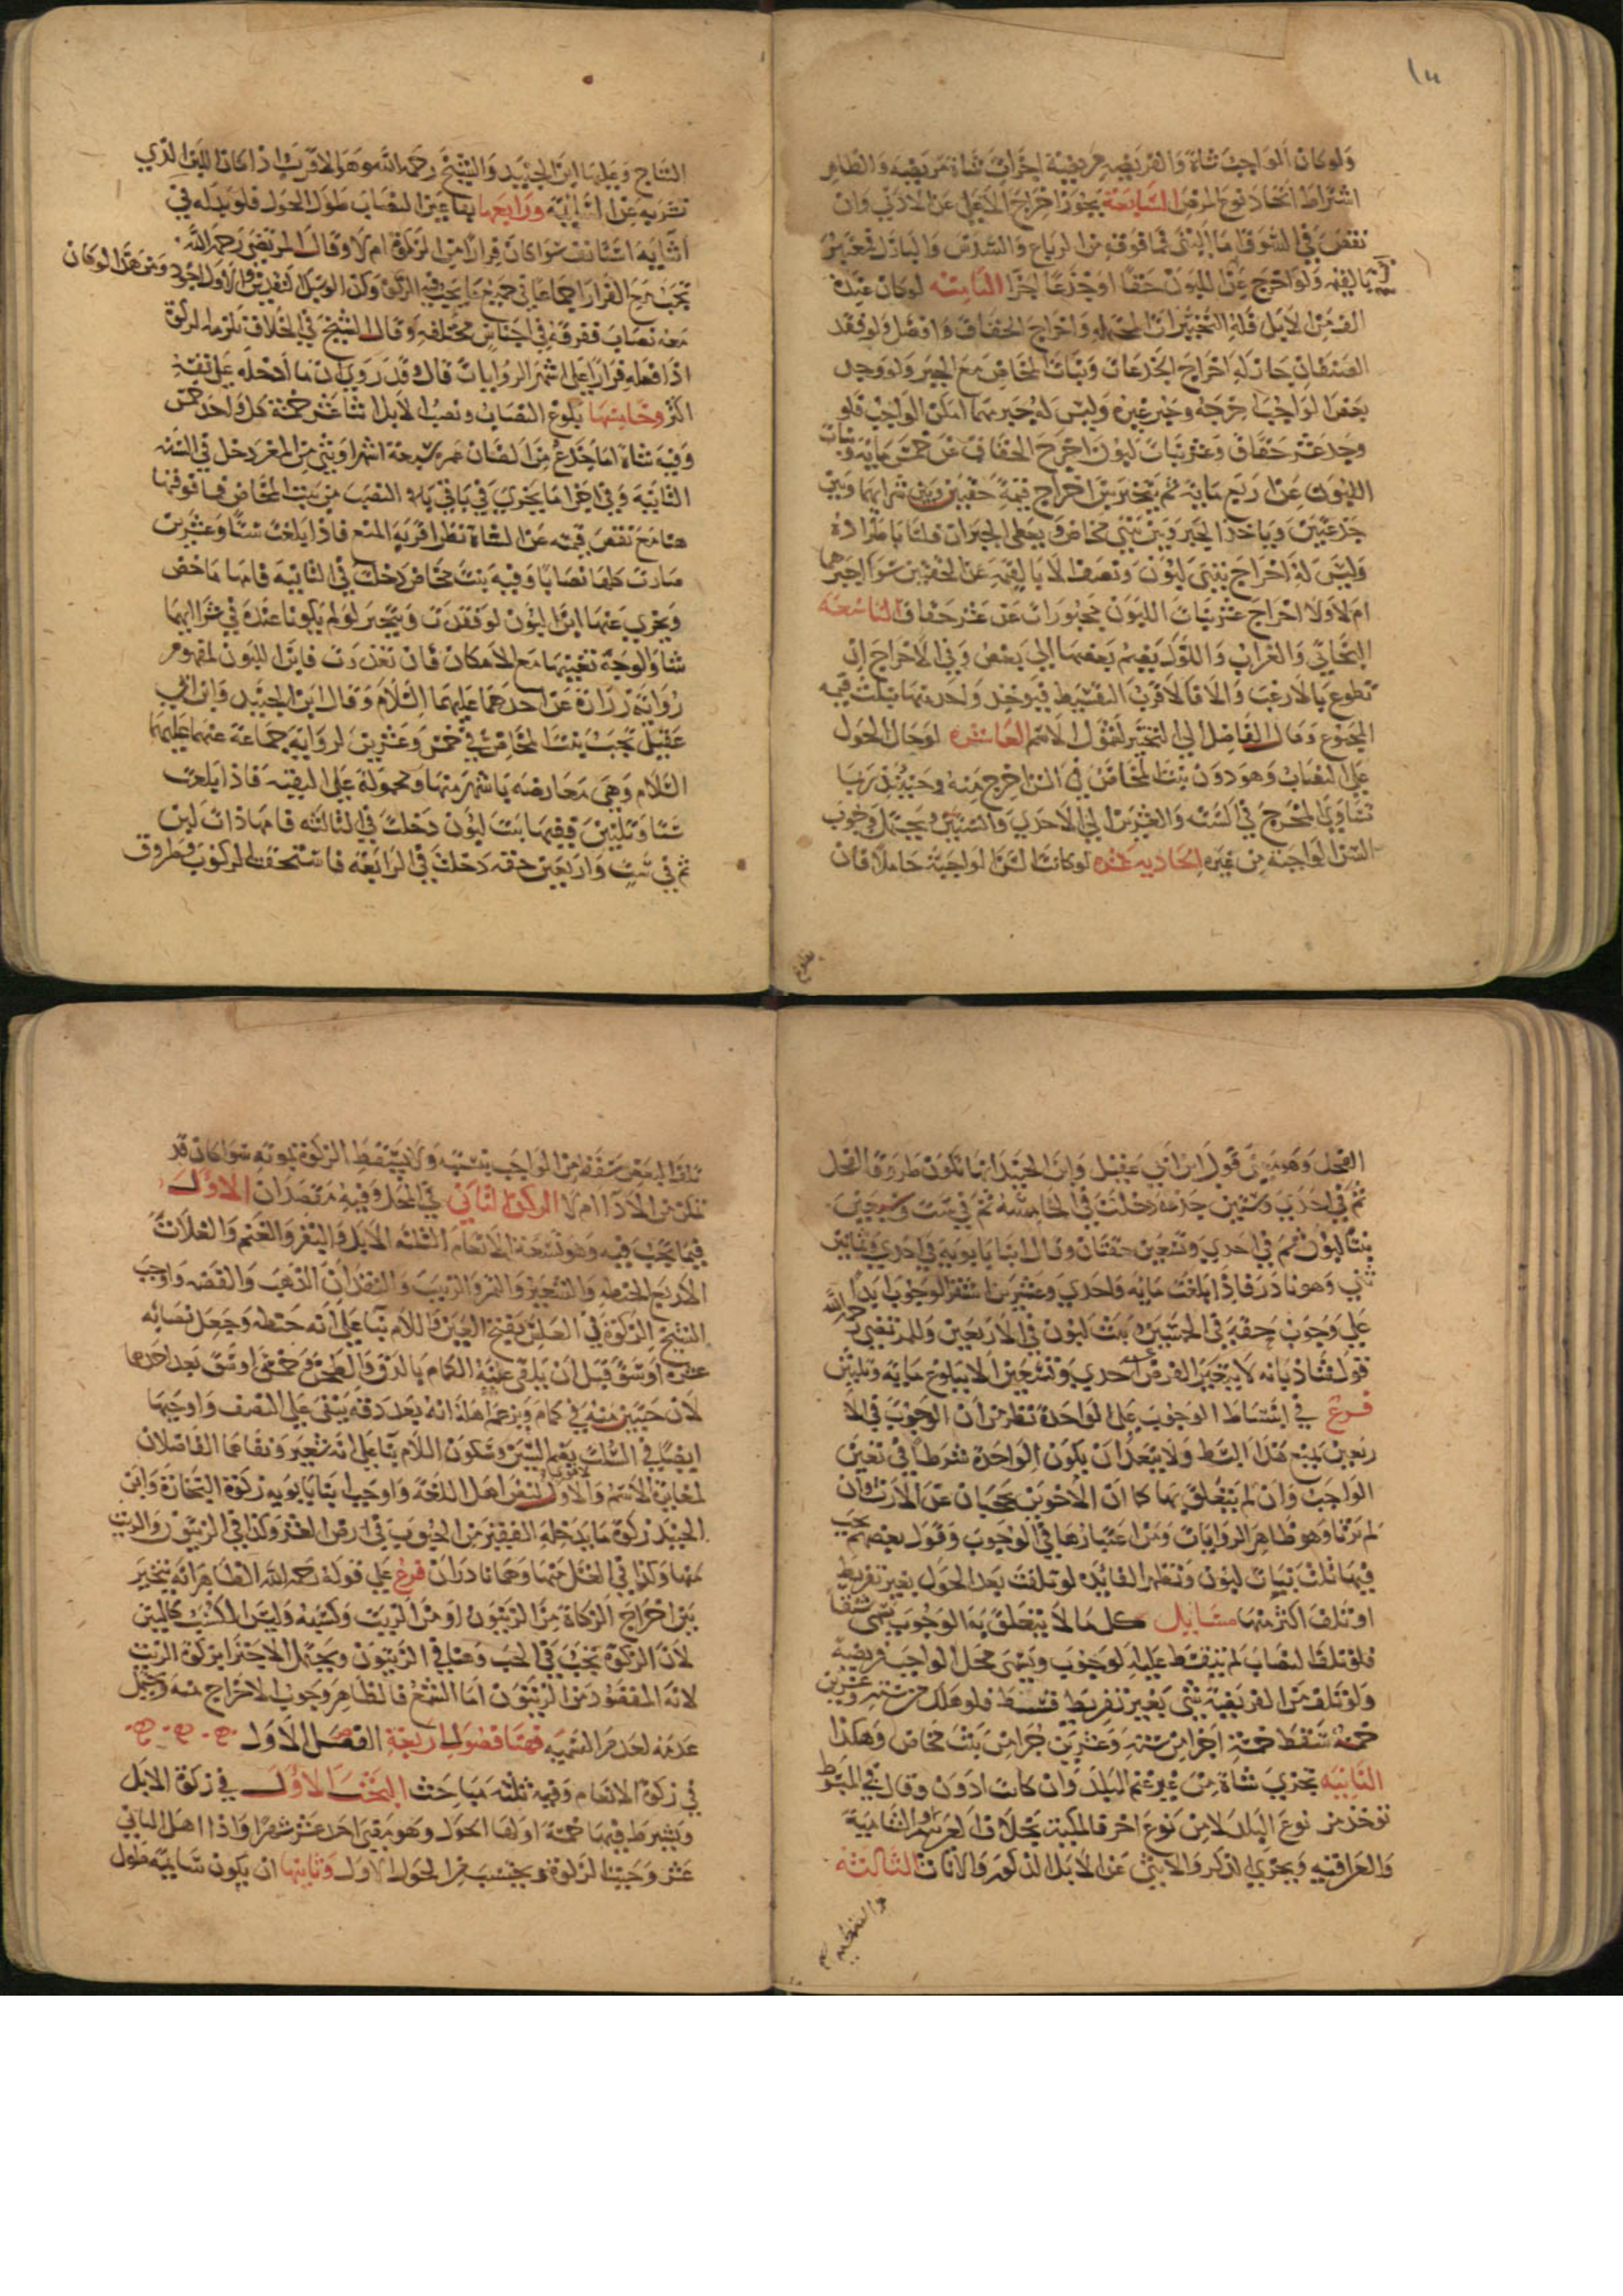 ١٤
ولو كان الواجب شاة والفريضه مريضة اجزأت شاة مريضه والظاهر
اشتراط اتحاد نوع المرض السابعة يجوز اخراج الاعلى عن الادنى وان
نقص في السوق اما الثني فما فوقه من الرباع والسدس والبازل فيعتبر
بالقيمه ولو اخرج عن بنت اللبون حقا او جذعا اجزا الثامنه لو كان عنده
الف من الابل فله التخييرات المحتمله واخراج الحقاق افضل ولو فقد
الصنفان جاز له اخراج الجذعات وبنات المخاض مع الجبر ولو وجد
بعض الواجب اخرجه وجبر غيره وليس له جبر مهما امكن الواجب فلو
وجد عشر حقاق وعشر بنات لبون اخرج الحقاق عن خمس مايه وبنات
اللبون عن اربع مايه ثم يتخير بين اخراج قيمة حقتين وبين شرايهما وبين
جذعتين وياخذ الجبر وبين بنتي مخاض ويعطي الجبران
وليس له اخراج بنتي لبون ونصف الا بالقيمه عن الحقتين سوا جبرهما
ام لا ولا اخراج عشر بنات اللبون مجبورات عن عشر حقاق التاسعه
البخاتي والعراب واللوك يضم بعضها الى بعض وفي الاخراج ان
تطوع بالارغب والا فالاقرب التقسيط فيوخذ واحد منها بثلث قيمه
المجموع وقال الفاضل الى التخيير لشمول الاسم العاشره لو حال الحول
على النصاب وهو دون بنت المخاض في السن اخرج منه وحينئذ ربما
تساوى المخرج في الستة والعشرين الى الاحدى والستين ويحتمل وجوب
السن الواجبة من غيره الحاديه عشره لو كانت السن الواجبة حاملا فان
النتاج وعليها ابن الجنيد والشيخ رحمه الله وهو الاقرب اذا كان اللبن الذي
تشربه عن السايمه ورابعها بقا عين النصاب طول الحول فلو بدله في
اثنايه استانف سوا كان فرارا من الزكوة ام لا وقال المرتضى رحمه الله
تجب مع الفرار اجماعا في جميع ما يجب فيه الزكوة وكذا لو سبك النقدين والاول اجود ومن هذا لو كان
معه نصاب ففرقه في اجناس مختلفه وقال الشيخ في الخلاف تلزمه الزكوة
اذا فعله فرارا على اشهر الروايات قال وقد روي ان ما ادخله على نفسه
اكثر وخامسها بلوغ النصاب ونصب الابل اثنا عشر خمسة كل واحد خمس
وفيه شاة اما جذع من الضان عمره سبعة اشهر او ثني من المعز دخل في السنه
الثانية وفي اجزا ما يجزي في باقي النصب من بنت المخاض فما فوقها
هنا مع نقص قيمته عن الشاة نظر اقربه المنع فاذا بلغت ستا وعشرين
صارت كلها نصابا وفيه بنت مخاض دخلت في الثانيه فامها ماخض
ويجزي عنها ابن اللبون لو فقدت ويتخير لو لم يكونا عنده في شرا ايهما
شا والوجه تعيينها مع الامكان فان تعذرت فابن اللبون لمفهوم
رواية زرارة عن احدهما عليهما السلام وقال ابن الجنيد وابن ابي
عقيل تجب بنت المخاض في خمس وعشرين لرواية جماعة عنهما عليهما
السلام وهي معارضه باشهر منها ومحمولة على التقيه فاذا بلغت
ستا وثلثين ففيها بنت لبون دخلت في الثالثه فامها ذات لبن
ثم في ست واربعين حقه دخلت في الرابعة فاستحقت الركوب وطروق
الفحل وهو معنى قول ابن ابي عقيل وابن الجنيد انها تكون طروقة الفحل
ثم في احدى وستين جذعة دخلت في الخامسة ثم في ست وسبعين
بنتا لبون ثم في احدى وتسعين حقتان وقال ابنا بابويه في احدى وثمانين
ثني وهو نادر فاذا بلغت مايه واحدى وعشرين استقر الوجوب ابدا
على وجوب حقة في الخمسين وبنت لبون في الاربعين وللمرتضى رحمه الله
قول شاذ بانه لا يتغير الفرض عن احدى وتسعين الا ببلوغ مايه وثلثين
فرع في اشتراط الوجوب على الواحدة نظر من ان الوجوب في الا
ربعين يمنع هذا الشرط ولا يبعد ان يكون الواحدة شرطا في تعيين
الواجب وان لم يتعلق بها كما ان الاخوين يحجبان عن الارث وان
لم يرثا وهو ظاهر الروايات ومن اعتبارها في الوجوب وقول بعضهم تجب
فيها ثلث بنات لبون وتظهر الفايده لو تلفت بعد الحول بغير تفريط
او تلف اكثر منها مسايل كل ما لا يتعلق به الوجوب يسمى شنقا
فلو تلف النصاب لم يسقط الوجوب ويسمى محل الواجب فريضة
ولو تلف من الفريضة شي بغير تفريط قسط فلو هلك من ستة وعشرين
خمسه سقط خمسة اجزا من ستة وعشرين جزا من بنت مخاض وهكذا
الثانيه تجزي شاة من غير غنم البلد وان كانت ادون وقال في المبسوط
توخذ من نوع البلد لا من نوع اخر فالمكية بخلاف العربية والشامية
والعراقيه ويجزي الذكر والانثى عن الابل الذكور والاناث الثالثه
تلف البعض سقط من الواجب بنسبته ولا يسقط الزكوة بموته سوا كان قد
تمكن من الادا ام لا الركن الثاني في المحل وفيه مقصدان الاول
فيما تجب فيه وهو تسعة الانعام الثلثه الابل والبقر والغنم والغلات
الاربع الحنطه والشعير والتمر والزبيب والنقدان الذهب والفضه واوجب
الشيخ الزكوة في العلس بفتح العين واللام بنا على انه حنطه وجعل نصابه
عشرة اوسق قبل ان يلقى عنه الكمام بالدق والطحن وخمسة اوسق بعد احدهما
لان حبتين منه في كمام ويزعم اهله انه بعد دقه يبقى على النصف واوجبها
ايضا في السلت بضم السين وسكون اللام بنا على انه شعير ونفاها الفاضلان
لمغايرة الاسم والاول اقوى لنص اهل اللغة واوجب ابنا بابويه زكوة التجارة وابن
الجنيد زكوة ما يدخله القفيز من الحبوب في ارض العشر وكذا في الزيتون والزيت
منها وكذا في العسل منها وهما نادران فرع على قوله رحمه الله الظاهر انه يتخير
بين اخراج الزكاة من الزيتون او من الزيت وكسبه وليس الكسب كالتبن
لان الزكوة تجب في الحب وهنا في الزيتون ويحتمل الاجتزا بزكوة الزيت
لانه المقصود من الزيتون اما الشمع فالظاهر وجوب الاخراج منه ويحتمل
عدمه لعدم التسميه فهنا فصول اربعة الفصل الاول
في زكوة الانعام وفيه ثلثه مباحث البحث الاول في زكوة الابل
ويشترط فيها خمسة اولها الحول وهو مضي احد عشر شهرا واذا اهل الثاني
عشر وجبت الزكوة ويحتسب من الحول الاول وثانيها ان يكون سايمة طول